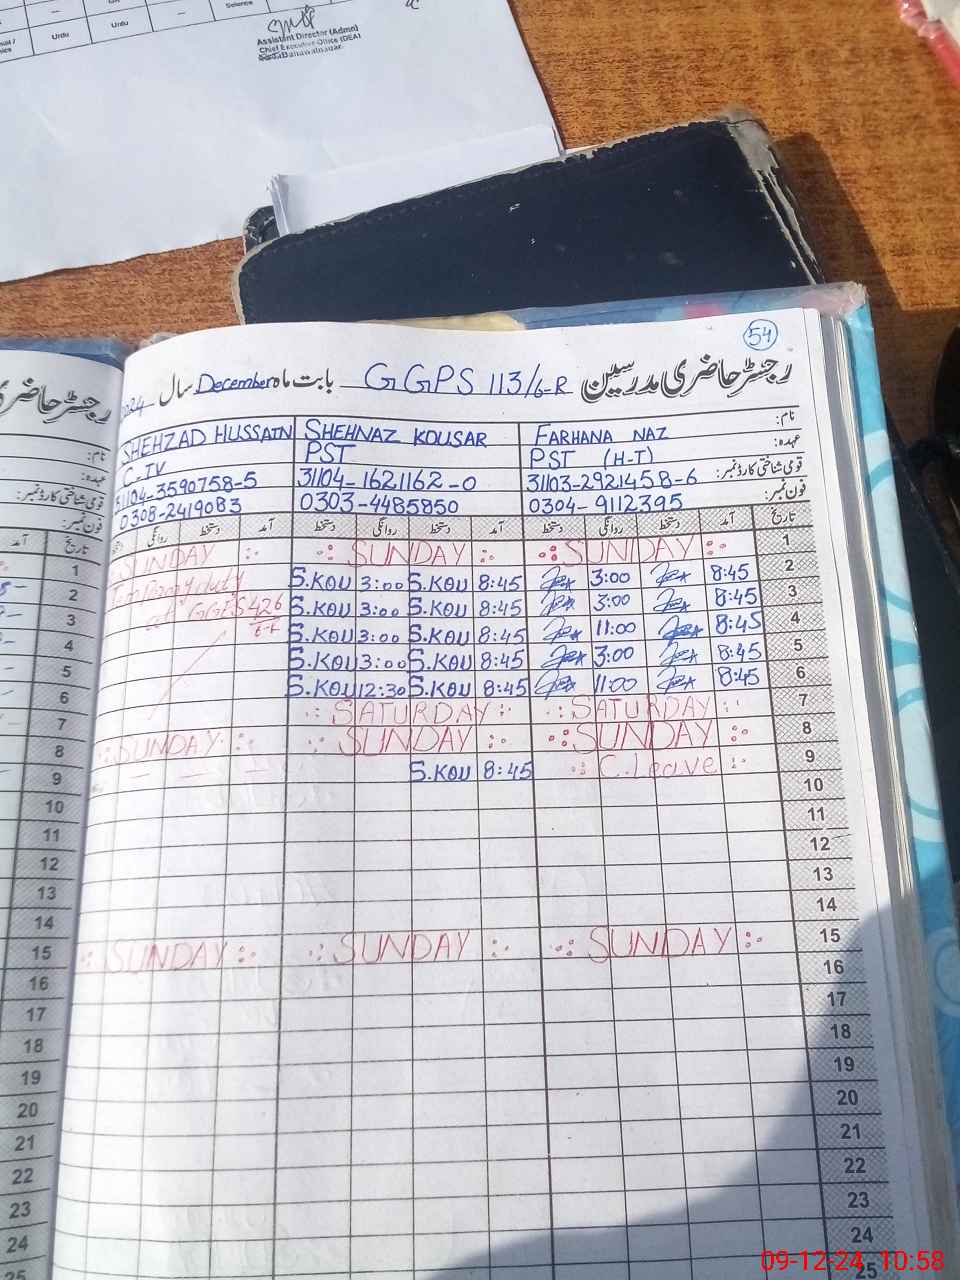 Urdu
Urdu
Science
Assistant Director (Admn)
Chief Executive Office (DEA)
Bahawalnagar.
54
رجسٹر حاضری مدرسین GGPS 113/6-R بابت ماہ December سال 2024
نام: FARHANA NAZ SHEHNAZ KOUSAR SHEHZAD HUSSAIN
عہدہ: PST (H-T) PST C.IV
قومی شناختی کارڈ نمبر: 31103-2921458-6 31104-1621162-0 31104-3590758-5
فون نمبر: 0304-9112395 0303-4485850 0308-2419083
تاریخ آمد دستخط روانگی دستخط آمد دستخط روانگی دستخط آمد دستخط روانگی دستخط
1 SUNDAY SUNDAY SUNDAY
2 8:45 3:00 8:45 S.KOU 3:00 S.KOU Temporary duty
3 8:45 3:00 8:45 S.KOU 3:00 S.KOU at GGPS 426
4 8:45 11:00 8:45 S.KOU 3:00 S.KOU
5 8:45 3:00 8:45 S.KOU 3:00 S.KOU
6 8:45 11:00 8:45 S.KOU 12:30 S.KOU
7 SATURDAY SATURDAY
8 SUNDAY SUNDAY SUNDAY
9 C.Leave 8:45 S.KOU
10
11
12
13
14
15 SUNDAY SUNDAY SUNDAY
16
17
18
19
20
21
22
23
24
25
رجسٹر حاضری
نام:
عہدہ:
قومی شناختی کارڈ نمبر:
فون نمبر:
تاریخ آمد
1
2
3
4
5
6
7
8
9
10
11
12
13
14
15
16
17
18
19
20
21
22
23
24
25
09-12-24 10:58